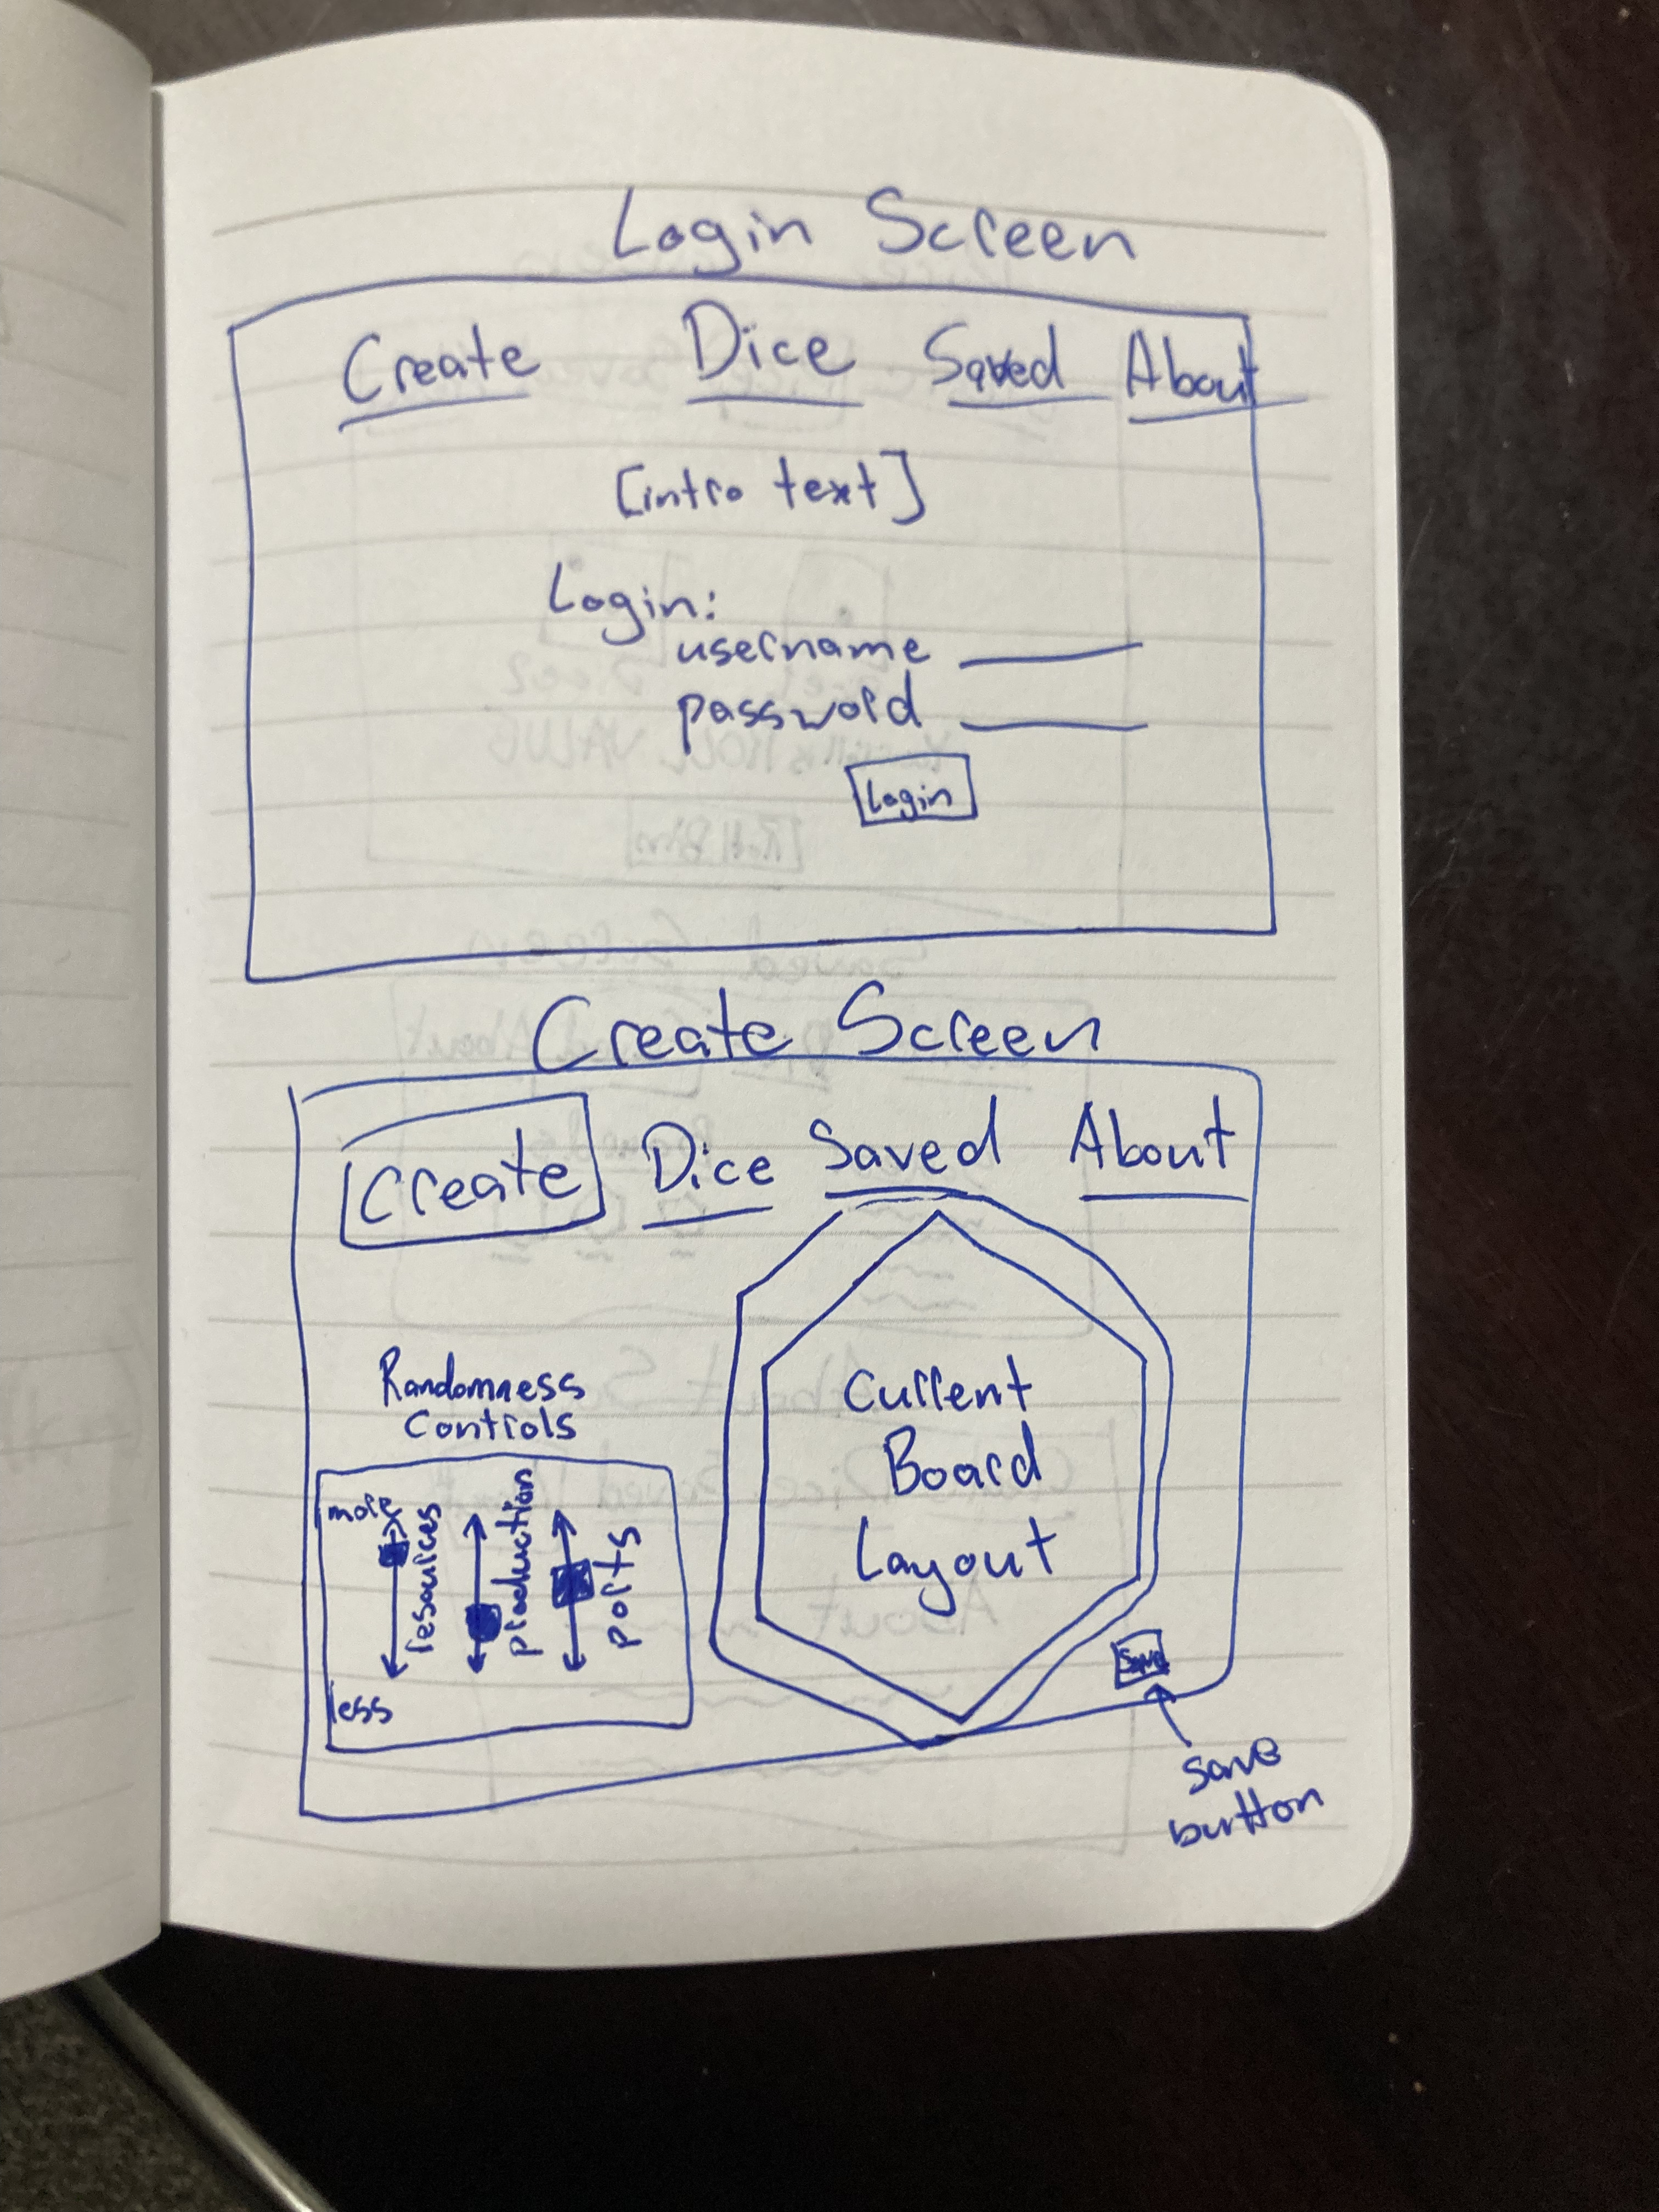 Login Screen
Create Dice Saved About
[intro text]
Login:
username
password
Login
Create Screen
Create Dice Saved About
Randomness
Controls
more
resources
production
ports
less
Current
Board
Layout
Save
save
button